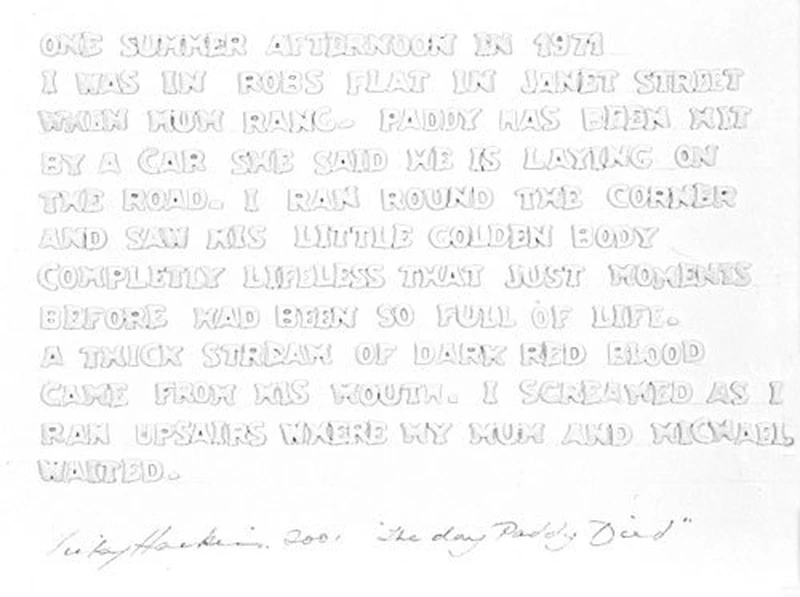 ONE SUMMER AFTERNOON IN 1971
I WAS IN ROBS FLAT IN JANET STREET
WHEN MUM RANG. PADDY HAS BEEN HIT
BY A CAR SHE SAID HE IS LAYING ON
THE ROAD. I RAN ROUND THE CORNER
AND SAW HIS LITTLE GOLDEN BODY
COMPLETLY LIFELESS THAT JUST MOMENTS
BEFORE HAD BEEN SO FULL OF LIFE.
A THICK STREAM OF DARK RED BLOOD
CAME FROM HIS MOUTH. I SCREAMED AS I
RAN UPSAIRS WHERE MY MUM AND MICHAEL
WAITED.
2001 "The day Paddy Died"